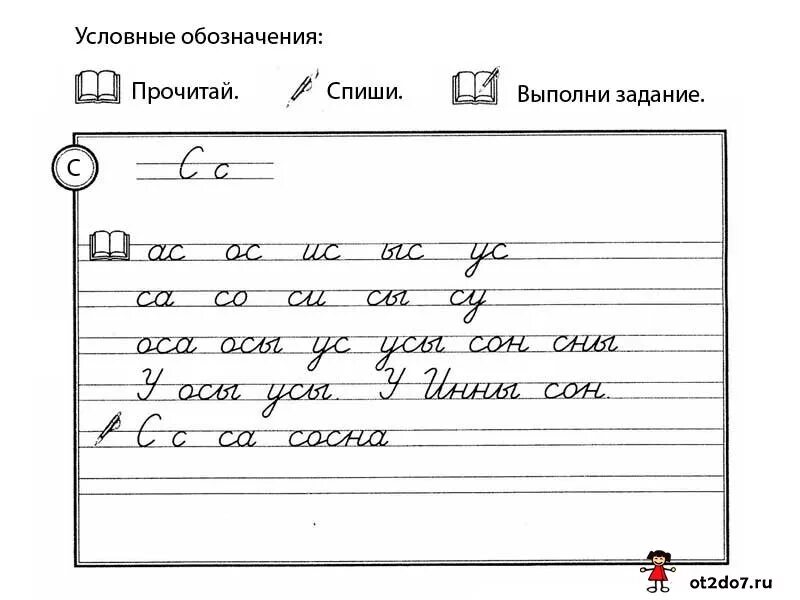 Условные обозначения:
Прочитай. Спиши. Выполни задание.
С
С с
ас ос ис ыс ус
са со си сы су
оса осы ус усы сон сны
У осы усы. У Инны сон.
С с са сосна
ot2do7.ru